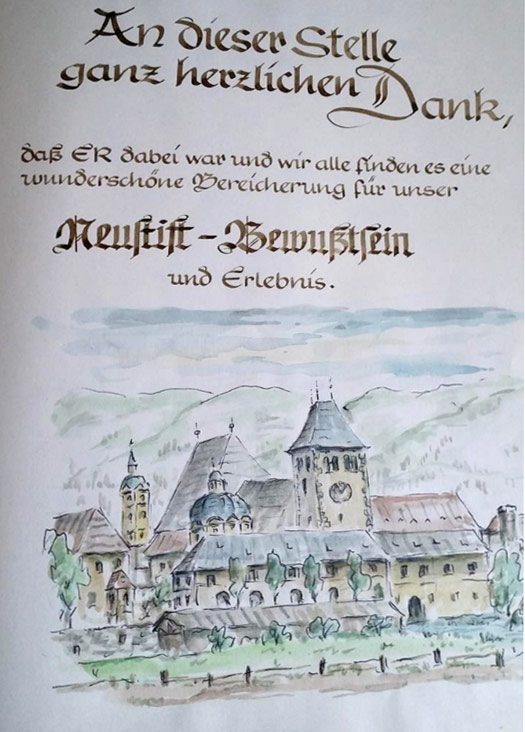 An dieser Stelle
ganz herzlichen Dank,
daß ER dabei war und wir alle finden es eine
wunderschöne Bereicherung für unser
Neustift - Bewußtsein
und Erlebnis.